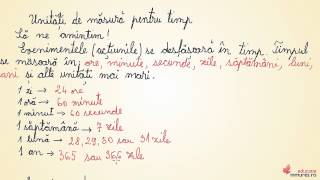 Unități de măsură pentru timp
Să ne amintim!
Evenimentele (acțiunile) se desfășoară în timp. Timpul
se măsoară în: ore, minute, secunde, zile, săptămâni, luni,
ani și alte unități mai mari.
1 zi → 24 ore
1 oră → 60 minute
1 minut → 60 secunde
1 săptămână → 7 zile
1 lună → 28, 29, 30 sau 31 zile
1 an → 365 sau 366 zile